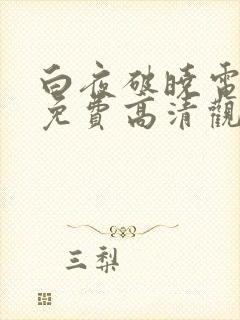 白夜破曉電
免費高清觀
三梨